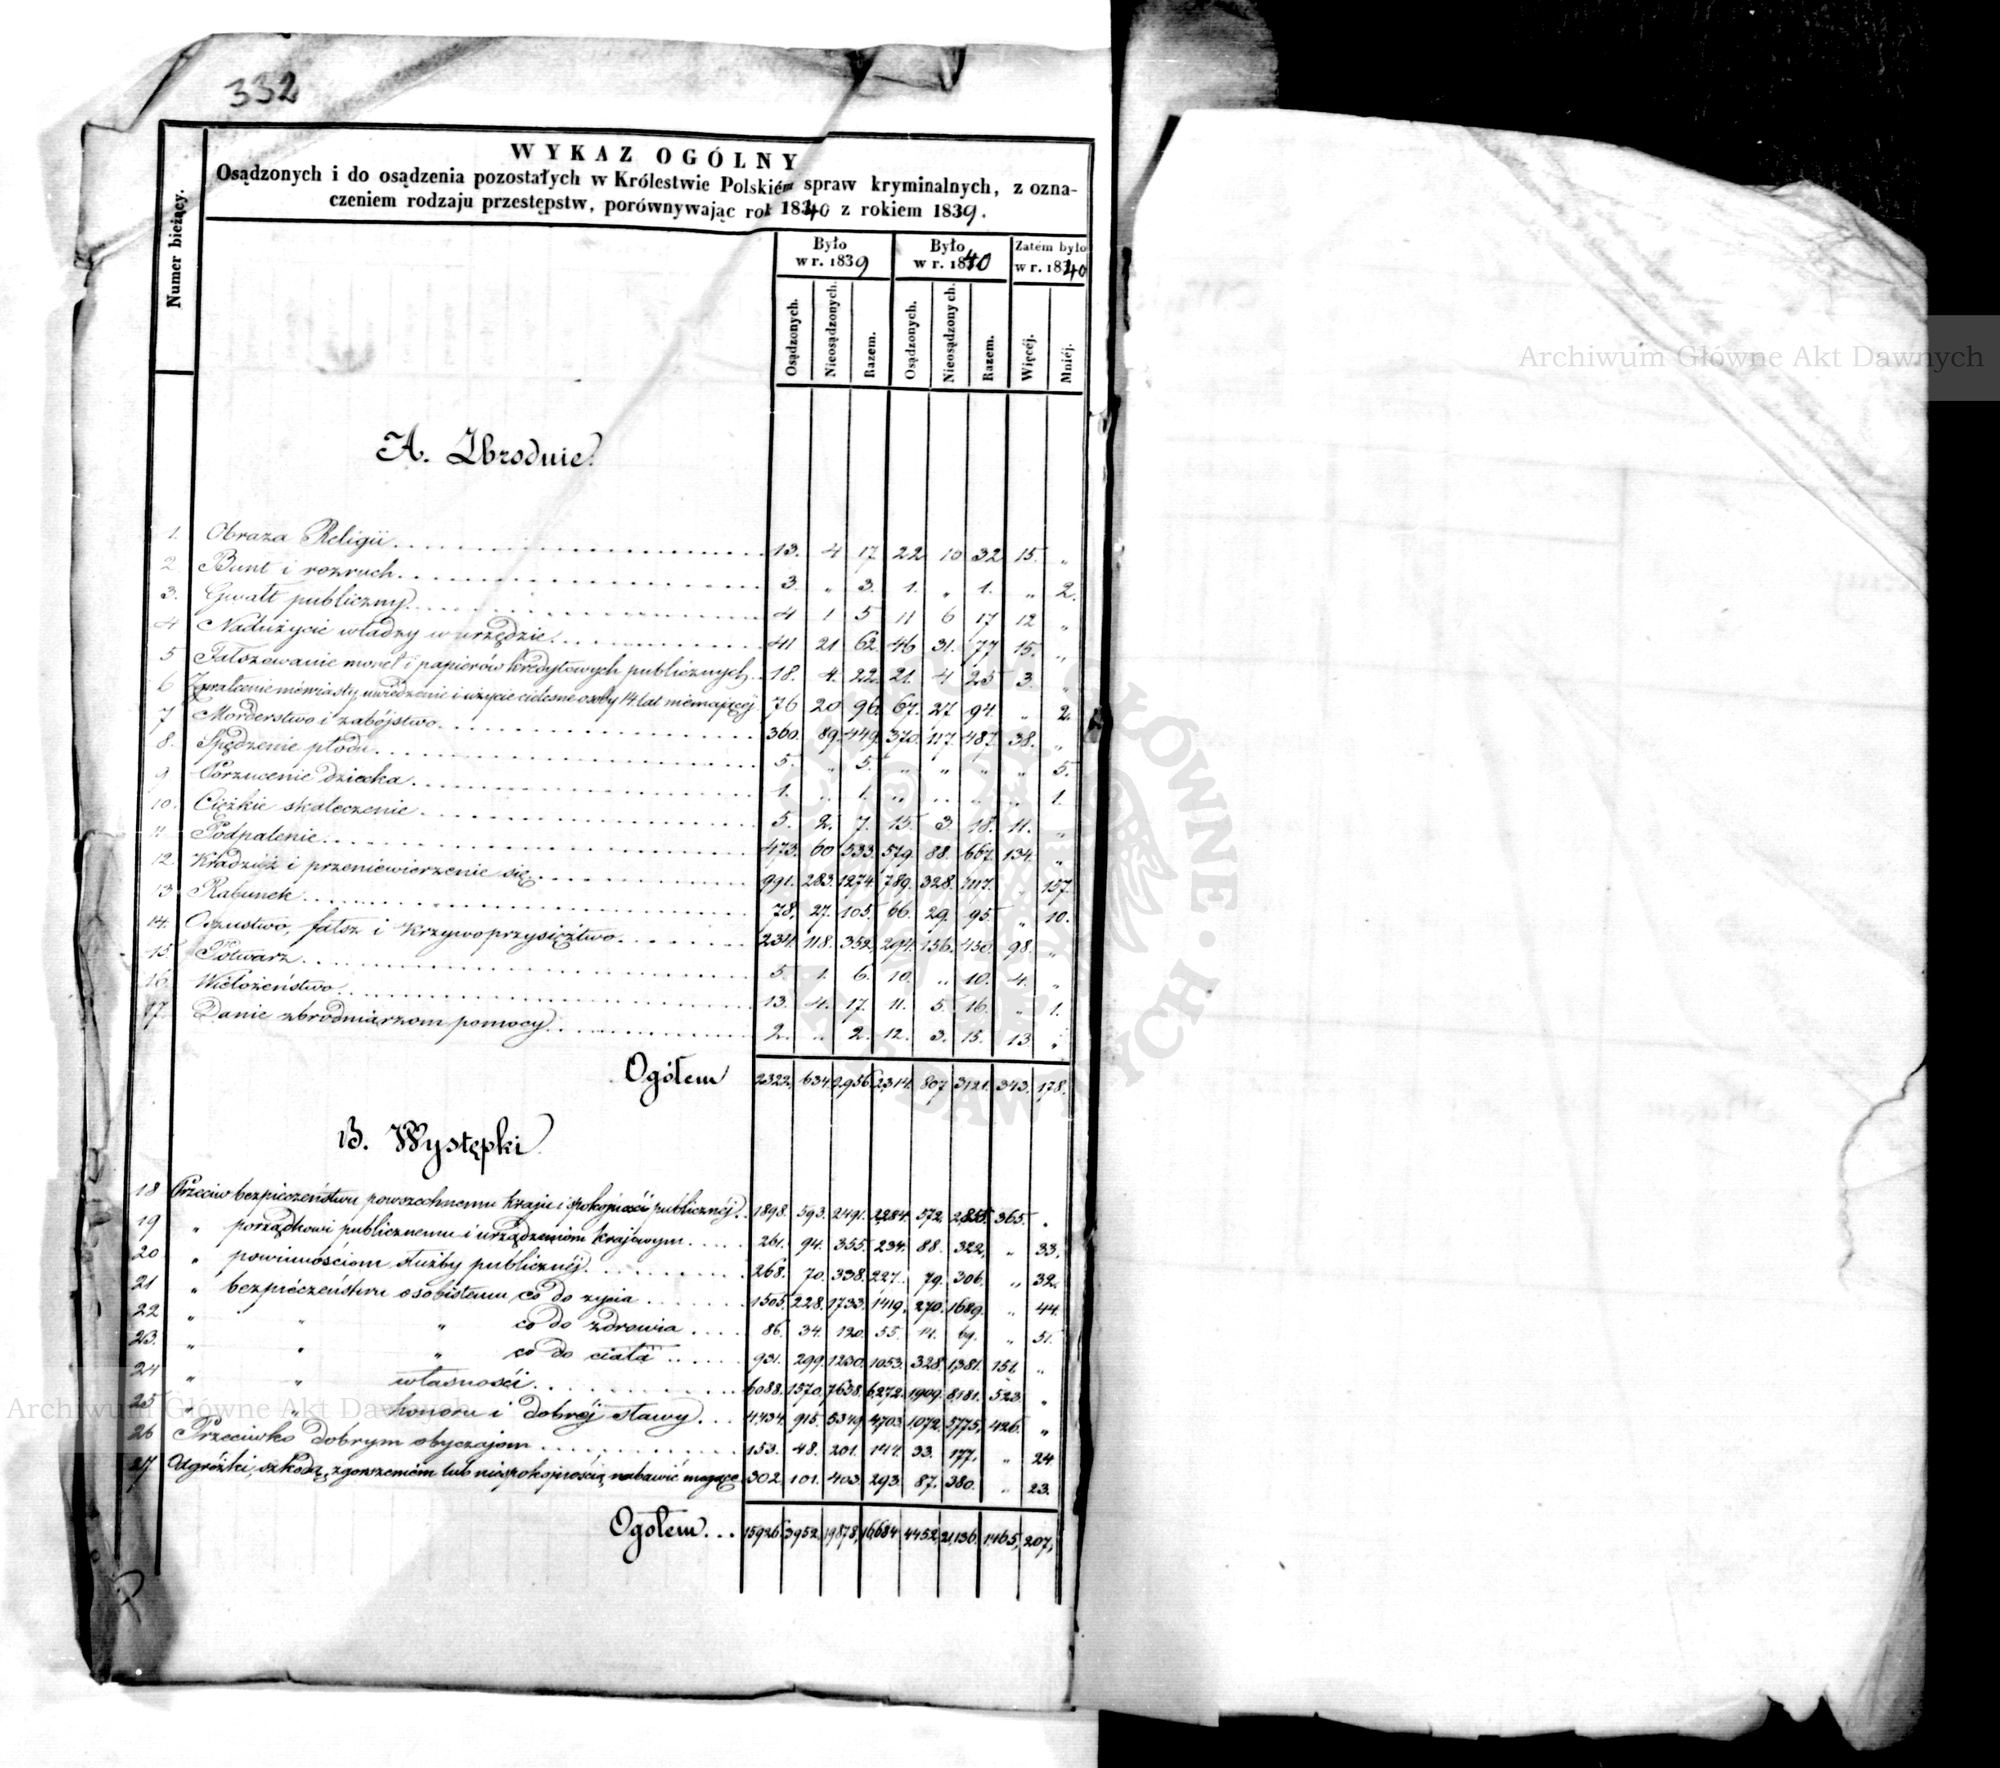 332
WYKAZ OGÓLNY
Osądzonych i do osądzenia pozostałych w Królestwie Polskiém spraw kryminalnych, z ozna-
czeniem rodzaju przestępstw, porównywając rok 1840 z rokiem 1839.
Numer bieżący.
Było w r. 1839 Było w r. 1840 Zatém było w r. 1840
Osądzonych. Nieosądzonych. Razem. Osądzonych. Nieosądzonych. Razem. Więcéj. Mniéj.
A. Zbrodnie.
1. Obraza Religii 13. 4 17. 22 10 32 15. "
2. Bunt i rozruch 3. " 3. 1. " 1. " 2.
3. Gwałt publiczny 4 1 5 11 6 17 12 "
4 Nadużycie władzy w urzędzie 41 21 62. 46 31. 77 15. "
5 Fałszowanie monet i papierów kredytowych publicznych 18. 4. 22. 21. 4 25 3. "
6 Zgwałcenie niewiasty, uwiedzenie i użycie cielesne osoby 14. lat niemającéj 76 20 96. 67. 27 94. " 2.
7 Morderstwo i zabójstwo 360. 89. 449. 370. 117. 487. 38. "
8. Spędzenie płodu 5. " 5. " " " " 5.
9 Porzucenie dziecka 1. " 1. " " " " 1.
10. Ciężkie skaleczenie 5. 2. 7. 15. 3. 18. 11. "
11 Podpalenie 473. 60 533. 579. 88. 667. 134. "
12. Kradzież i przeniewierzenie się 991. 283. 1274. 789. 328. 1117. " 157.
13 Rabunek 78. 27. 105. 66. 29. 95. " 10.
14. Oszustwo, fałsz i krzywoprzysięztwo 234. 118. 352. 294. 156. 450. 98. "
15. Potwarz 5. 1. 6. 10. " 10. 4. "
16. Wielożeństwo 13. 4. 17. 11. 5. 16. " 1.
17. Danie zbrodniarzom pomocy 2. " 2. 12. 3. 15. 13 "
Ogółem 2322. 634. 2,956. 2,314. 807 3121. 343. 178.
B. Występki
18 Przeciw bezpieczeństwu powszechnemu kraju i spokojności publicznéj 1898. 593. 2491. 2284. 572. 2,856. 365. "
19 " porządkowi publicznemu i urządzeniom krajowym 261. 94. 355. 234. 88. 322. " 33.
20 " powinnościom służby publicznéj 268. 70. 338. 227. 79. 306. " 32.
21 " bezpieczeństwu osobistemu co do życia 1505. 228. 1733. 1419. 270. 1689. " 44.
22 " " " co do zdrowia 86. 34. 120. 55. 14. 69. " 51.
23. " " " co do ciała 931. 299. 1230. 1053. 328. 1,381. 151. "
24 " " własności 6088. 1570. 7658. 6,272. 1,909. 8181. 523. "
25 " " honoru i dobréj sławy 4,434. 915. 5349. 4703. 1072. 5775. 426. "
26 Przeciwko dobrym obyczajom 153. 48. 201. 144. 33. 177. " 24.
27. Ugróżki, szkodą, zgorszeniem lub niespokojnością nabawić mogące 302. 101. 403. 293. 87. 380. " 23.
Ogółem 15926. 3952. 19878. 16,684 4452. 21,136. 1,465. 207.
Archiwum Główne Akt Dawnych
Archiwum Główne Akt Dawnych